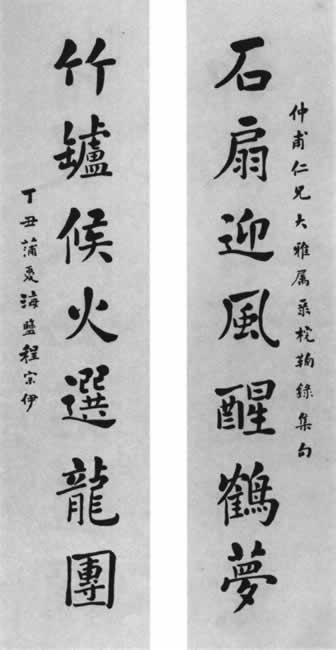 仲甫仁兄大雅属彔梡鞠錄集句
石扇迎風醒鶴夢
竹罏候火選龍團
丁丑蒲夏海鹽程宗伊